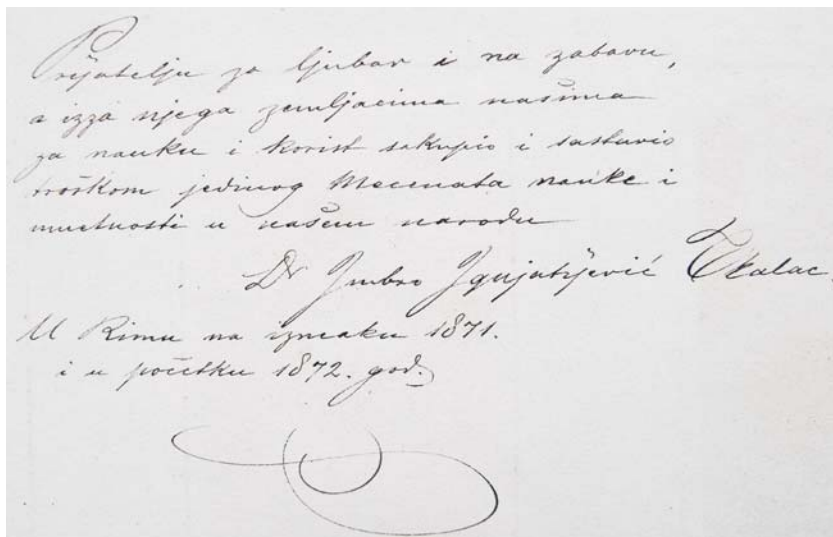 Prijatelju za ljubav i na zabavu,
a izza njega zemljacima našima
za nauku i korist sakupio i sastavio
troškom jedinog Mecenata nauke i
umetnosti u našem narodu
Dr Imbro Ignjatijević Tkalac.
U Rimu na izmaku 1871.
i u početku 1872. god.